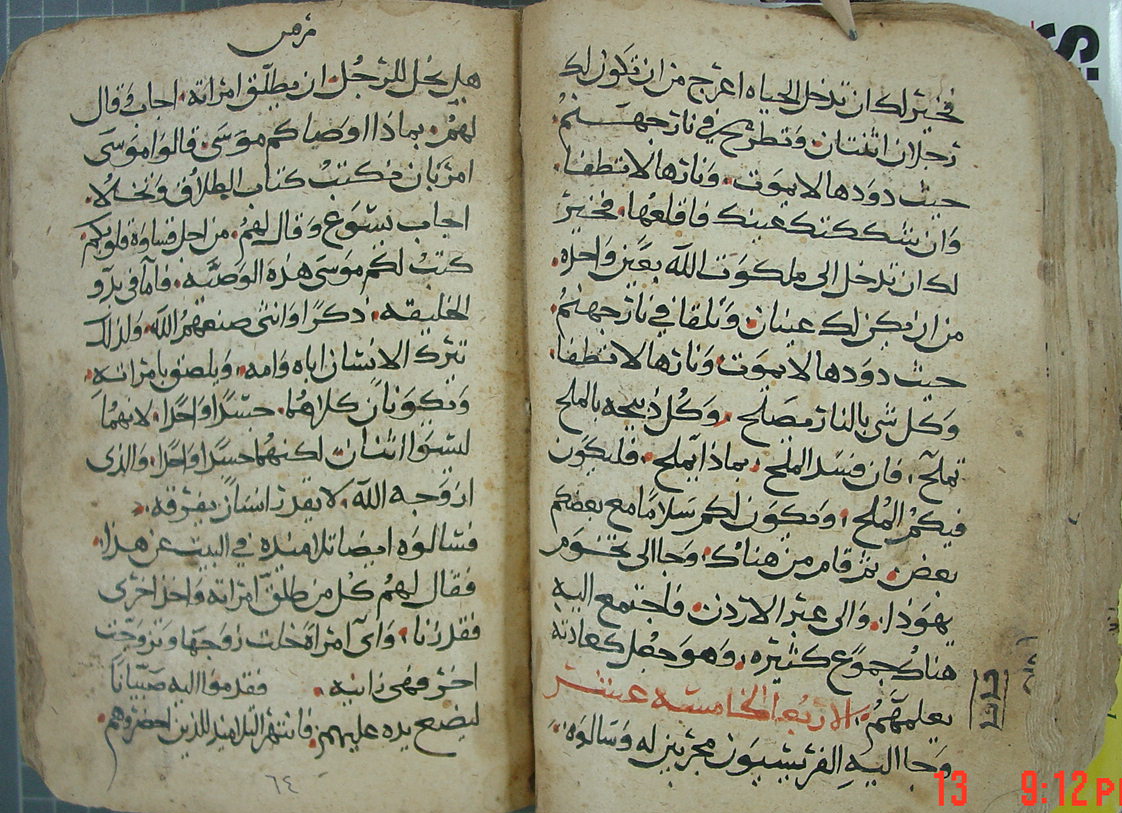 فخير لك ان تدخل الحياه اعرج من ان تكون لك
رجلان اثنتان. وتطرح في نار جهنم.
حيث دودها لا يموت. ونارها لا تطفا.
وان شككتك عينك فاقلعها. فخير
لك ان تدخل الى ملكوت الله بعين واحده
من ان يكن لك عينان. وتلقا في نار جهنم.
حيث دودها لا يموت. ونارها لا تطفا.
وكل شي بالنار مصلح. وكل ذبيحه بالملح
تملح. فان فسد الملح. بماذا يملح. فليكون
فيكم الملح. ويكون لكم سلاما مع بعضكم
بعض. ثم قام من هناك. وجا الى تخوم
يهوذا. والى عبر الاردن. فاجتمع اليه
هناك جموع كثيره. وهو جعل كعادته
يعلمهم. الاربعا الخامسه عشر
وجا اليه الفريسيون مجربين له وسالوه.
مرمس
هل يحل للرجل ان يطلق امراته. اجاب وقال
لهم. بماذا اوصاكم موسى. قالوا موسى
امر بان نكتب كتاب الطلاق ونخلا.
اجاب يسوع وقال لهم. من اجل قساوة قلوبكم
كتب لكم موسى هذه الوصيه. فاما في بدو
الخليقه. ذكرا وانثى صنعهم الله. ولذلك
يترك الانسان اباه وامه. ويلصق بامراته
ويكونان كلاهما. جسدا واحدا. لانهما
ليسوا اثنان لكنهما جسدا واحدا. والذي
ازوجه الله. لا يقدر انسان يفرقه.
فسالوه ايضا تلاميذه في البيت عن هذا.
فقال لهم كل من طلق امراته واخذ اخرى
فقد زنا. واي امراة خلت زوجها وتزوجت
اخر فهي زانيه. فقدموا اليه صبيانا
ليضع يده عليهم. فانتهر التلاميذ للذين احضروهم
٦٤
13 9:12 PM